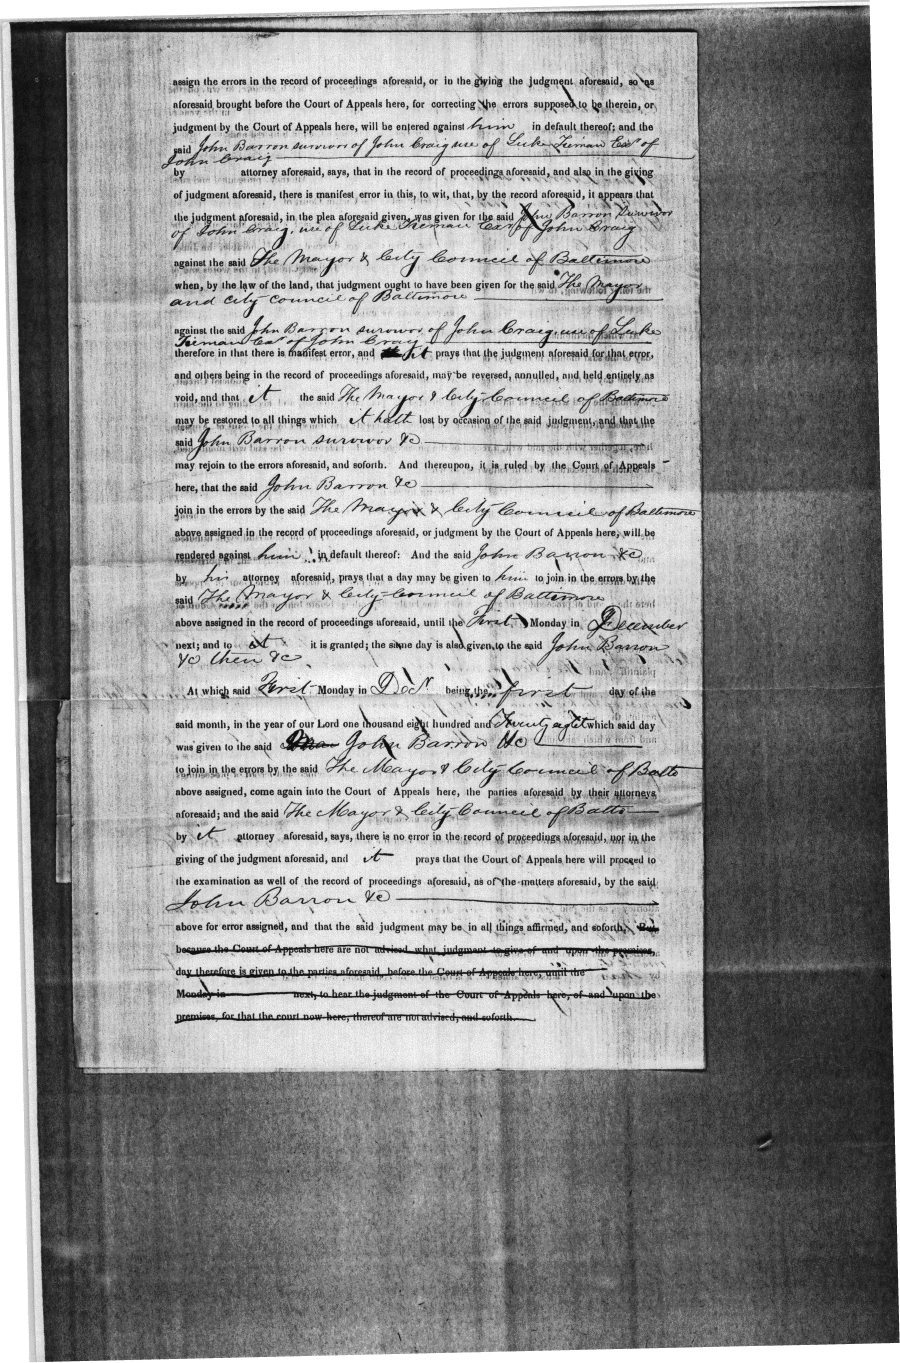 assign the errors in the record of proceedings aforesaid, or in the giving the judgment aforesaid, so as
aforesaid brought before the Court of Appeals here, for correcting the errors supposed to be therein, or
judgment by the Court of Appeals here, will be entered against him in default thereof; and the
said John Barron survivor of John Craig use of Luke Tiernan Exr of
John Craig
by attorney aforesaid, says, that in the record of proceedings aforesaid, and also in the giving
of judgment aforesaid, there is manifest error in this, to wit, that, by the record aforesaid, it appears that
the judgment aforesaid, in the plea aforesaid given, was given for the said John Barron Survivor
of John Craig, use of Luke Tiernan Exr of John Craig
against the said The Mayor & City Council of Baltimore
when, by the law of the land, that judgment ought to have been given for the said The Mayor
and city council of Baltimore
against the said John Barron survivor of John Craig, use of Luke
Tiernan Exr of John Craig
therefore in that there is manifest error, and it prays that the judgment aforesaid for that error,
and others being in the record of proceedings aforesaid, may be reversed, annulled, and held entirely as
void, and that it the said The Mayor & City Council of Baltimore
may be restored to all things which it hath lost by occasion of the said judgment, and that the
said John Barron survivor &c
may rejoin to the errors aforesaid, and soforth. And thereupon, it is ruled by the Court of Appeals
here, that the said John Barron &c
join in the errors by the said The Mayor & City Council of Baltimore
above assigned in the record of proceedings aforesaid, or judgment by the Court of Appeals here, will be
rendered against him in default thereof: And the said John Barron &c
by his attorney aforesaid, prays that a day may be given to him to join in the errors by the
said The Mayor & City Council of Baltimore
above assigned in the record of proceedings aforesaid, until the First Monday in December
next; and to it it is granted; the same day is also given to the said John Barron
&c then &c
At which said First Monday in Decr being the first day of the
said month, in the year of our Lord one thousand eight hundred and Twenty eight which said day
was given to the said John Barron &c
to join in the errors by the said The Mayor & City Council of Balto
above assigned, come again into the Court of Appeals here, the parties aforesaid by their attorneys
aforesaid; and the said The Mayor & City Council of Balto
by it attorney aforesaid, says, there is no error in the record of proceedings aforesaid, nor in the
giving of the judgment aforesaid, and it prays that the Court of Appeals here will proceed to
the examination as well of the record of proceedings aforesaid, as of the matters aforesaid, by the said
John Barron &c
above for error assigned, and that the said judgment may be in all things affirmed, and soforth. But
because the Court of Appeals here are not advised what judgment to give of and upon the premises,
day therefore is given to the parties aforesaid, before the Court of Appeals here, until the
Monday in next, to hear the judgment of the Court of Appeals here, of and upon the
premises, for that the court now here, thereof are not advised, and soforth.